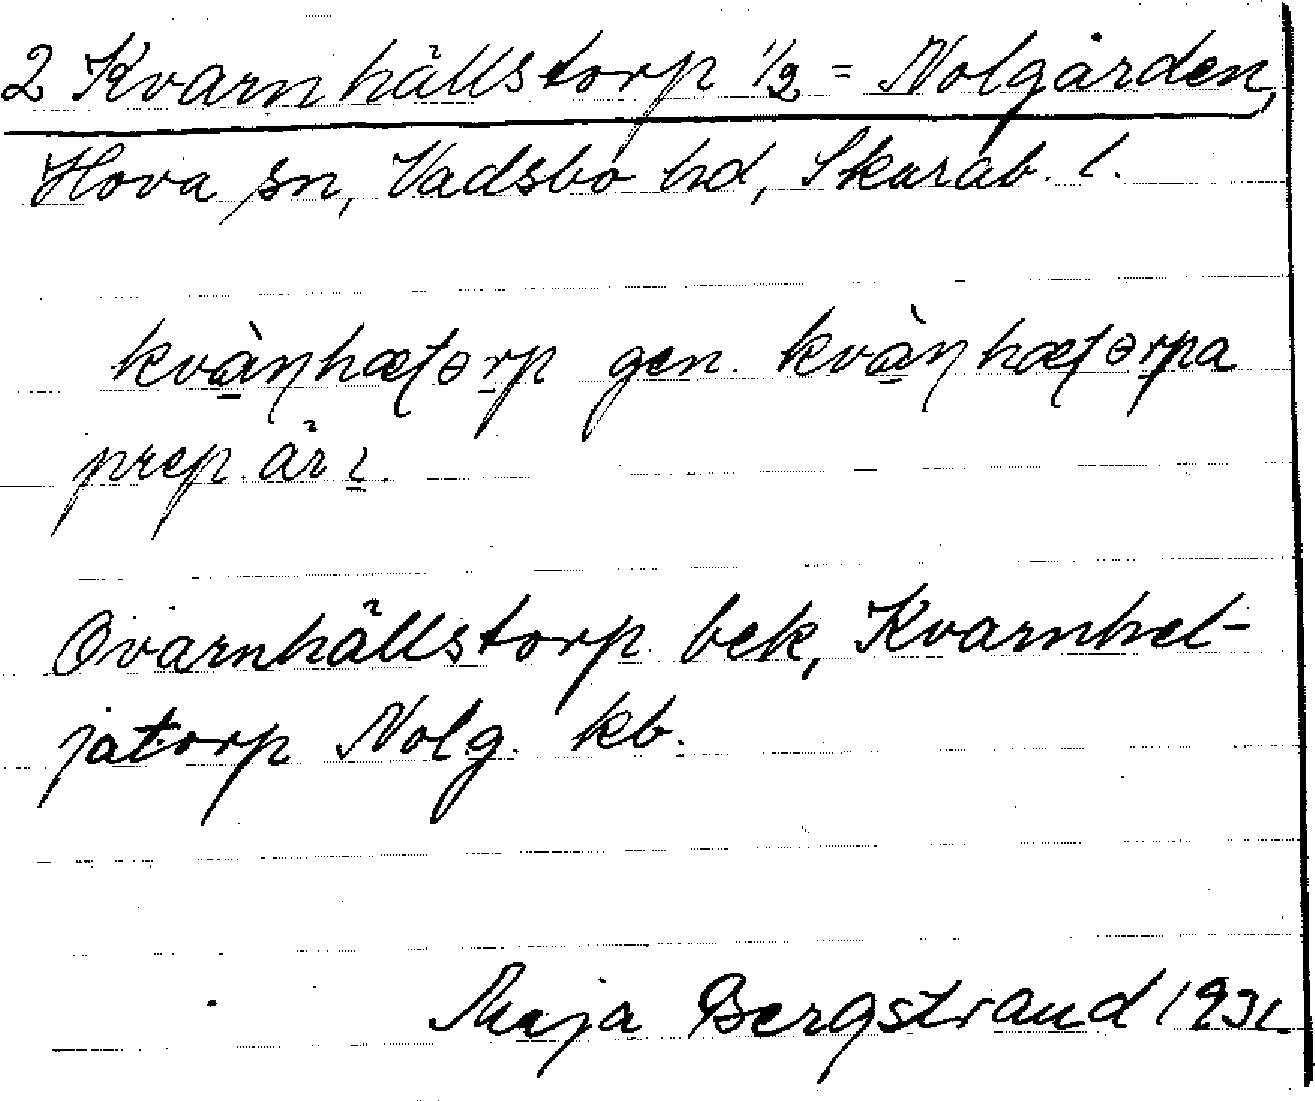 2 Kvarnhällstorp 1/2 = Nolgården,
Hova sn, Vadsbo hd, Skarab. l.
kvàṇhæʈɵrp gen. kvàṇhæʈɵrpa
prep. är ɩ.
Qvarnhällstorp bek, Kvarnhel-
jatorp Nolg. kb.
Maja Bergstrand